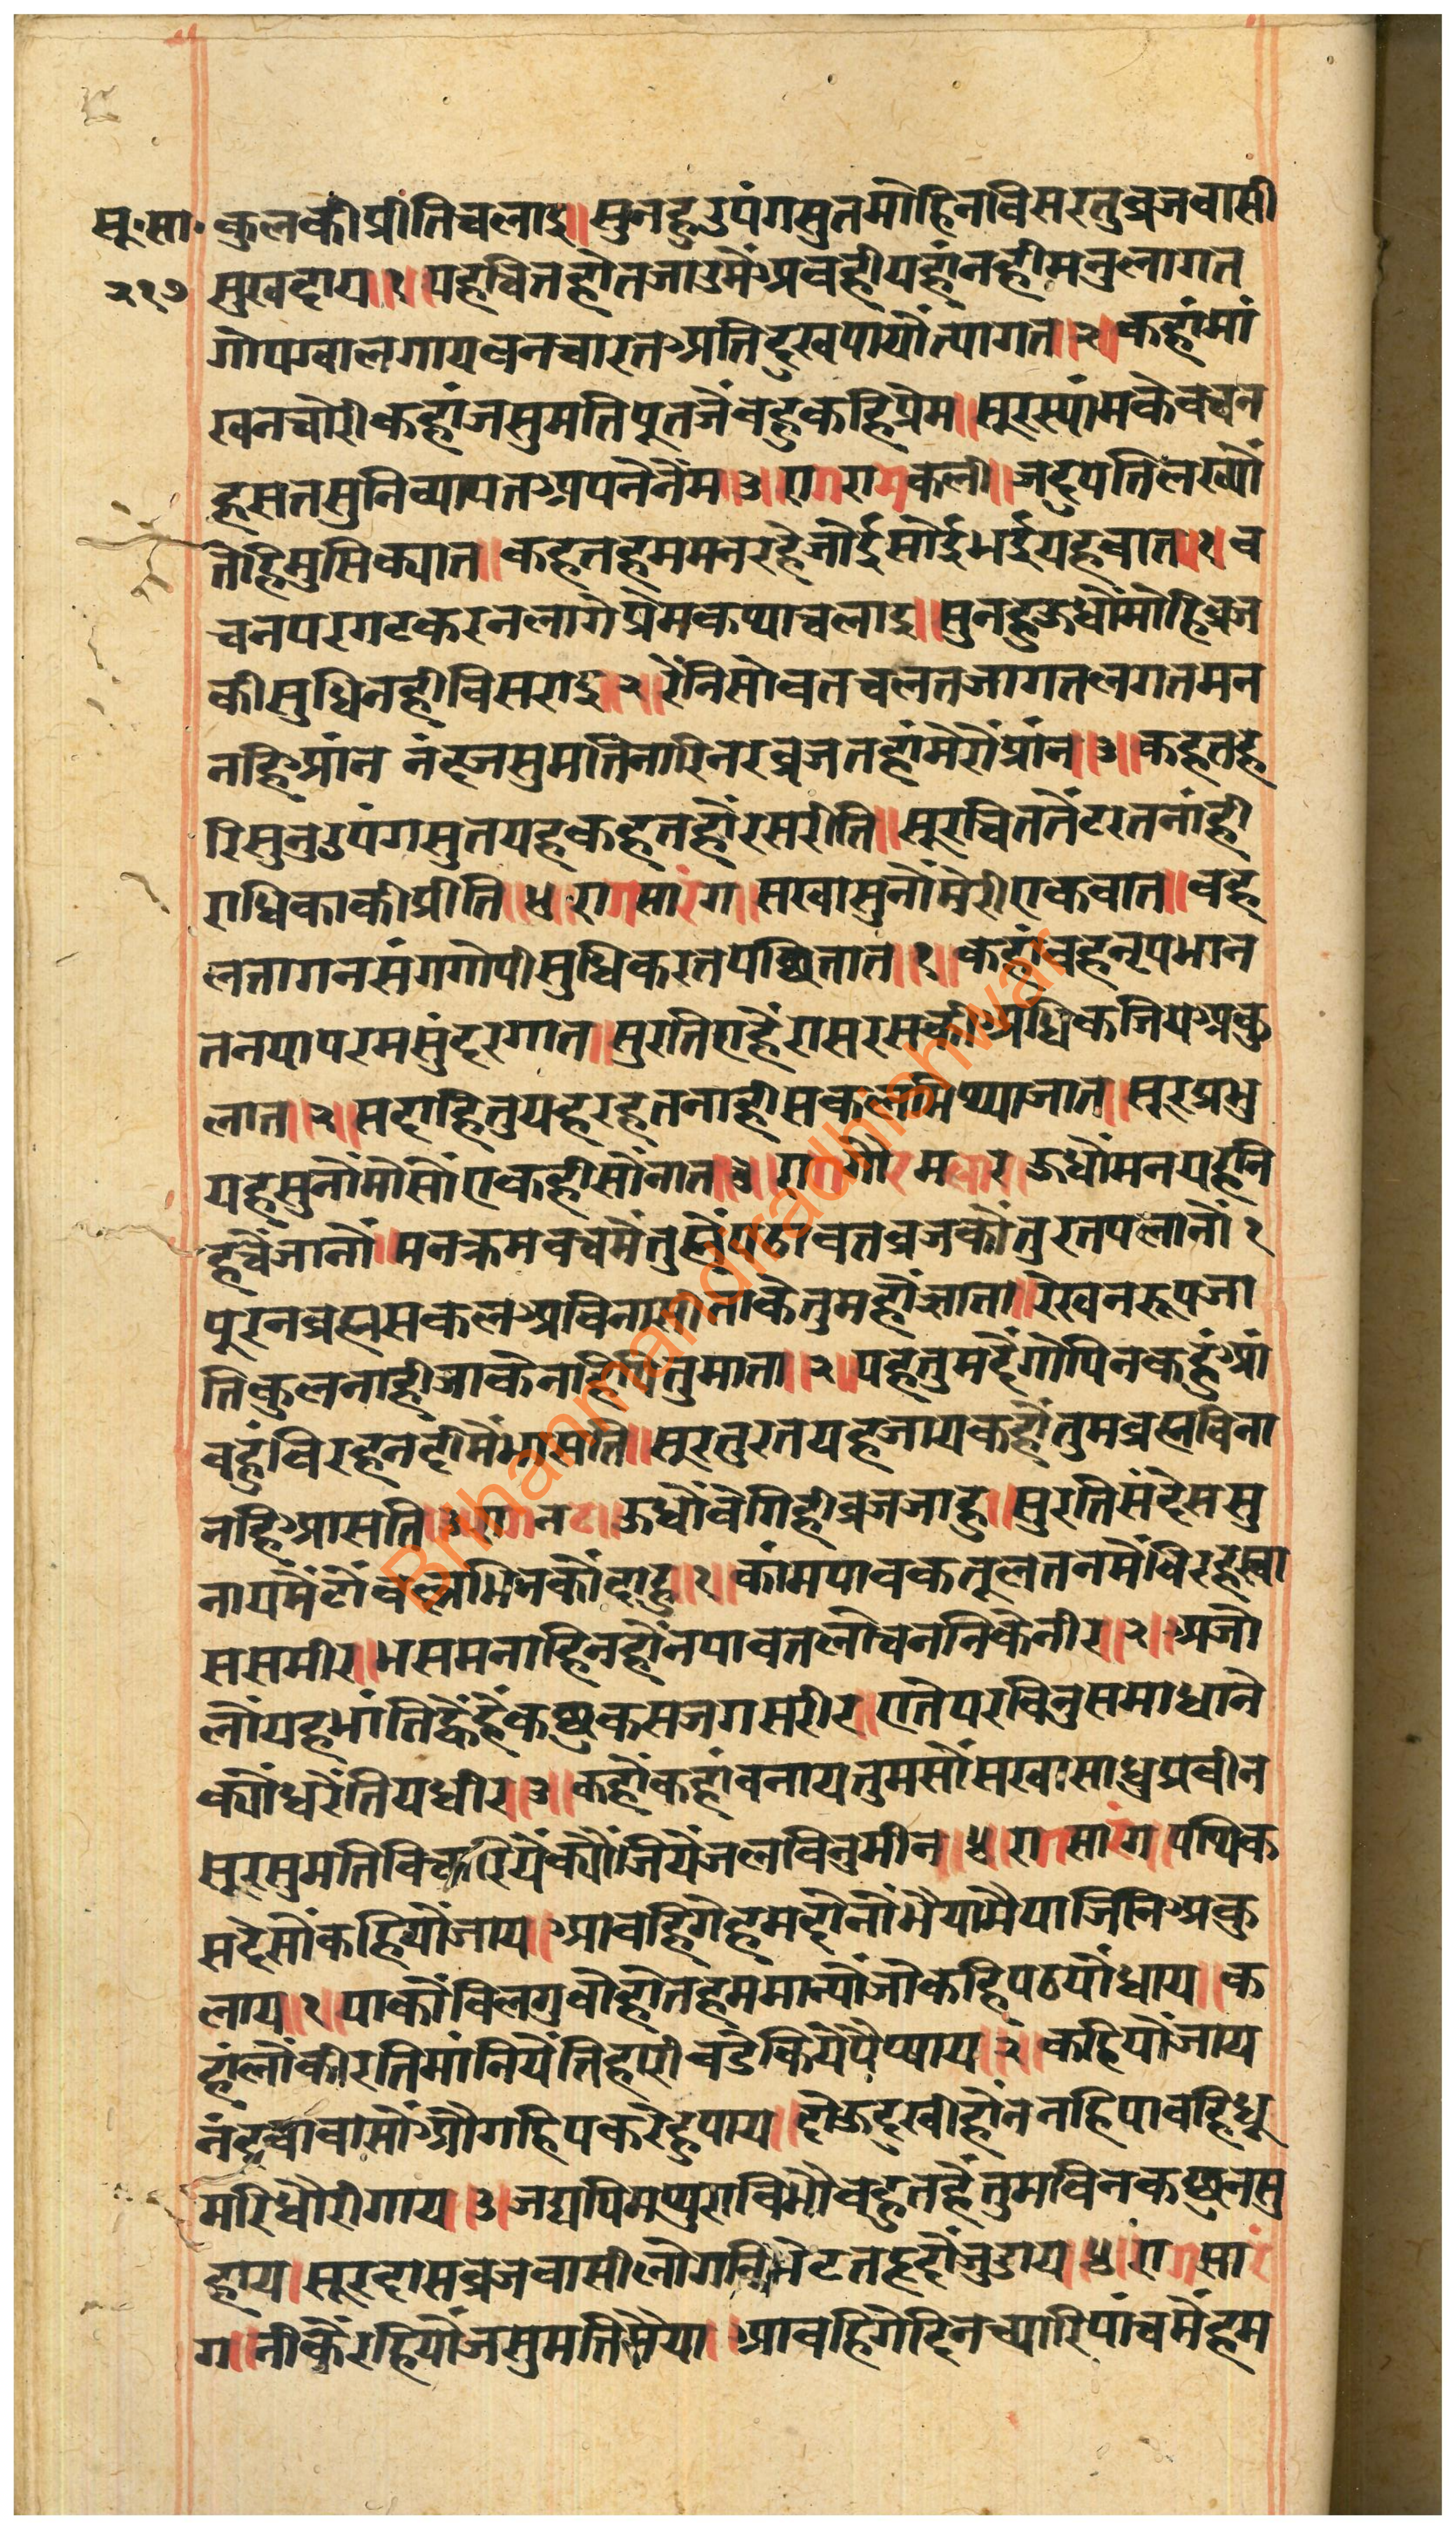 सू॰सा॰ कुलकी प्रीति चलाइ॥ सुनहु उपंगसुत मोहि न विसरतु व्रजवासी
२१७ सुखदाय॥१॥ यह चित होत जाउ मैं अवही यहां नही मनु लागत
गोप ग्वाल गाय वन चारत अति दुख पायौ त्यागत॥२॥ कहां मां
खन चोरी कहां जसुमति पूत जेंव हु कहि प्रेम॥ सूरस्यांम के वचन
हसत सुनि व्यापत अपने नेंम॥३॥ राग रामकली॥ जदुपति लख्यौ
तेहि मुसिक्यात॥ कहत हम मन रहे जोई सोई भई यह वात॥१॥ व
चन परगट करन लागे प्रेम कथ्या चलाइ॥ सुनहु ऊधौ मोहि व्रज
की सुधि नही विसराइ॥२॥ रैंनि सोवत चलत जागत लगत मन
नहि आंन नंद जसुमति नारि नर व्रज तहां मेरौ प्रांन॥३॥ कहत ह
रि सुनु उपंगसुत यह कहत हौं रसरीति॥ सूर चित तैं टरत नांही
राधिका की प्रीति॥४॥ राग सारंग॥ सखा सुनौं मेरी एक वात॥ वह
लतागन संग गोपी सुधि करत पछितात॥१॥ कहां वह नृपभान
तनया परम सुंदर गात॥ सुरति आएं रासरस की अधिक जिय अकु
लात॥२॥ सदा हितु यह रहत नाही सकल मिथ्या जात॥ सूर प्रभु
यह सुनौं मोसौं एकही सौं नात॥३॥ राग गौर मलार ऊधौं मन यह नि
हचै जानौं॥ मन क्रम वच मै तुम्हें पठावत व्रज कौं तुरत पलानौं १
पूरन व्रह्म सकल अविनासी ताके तुम हौ ज्ञाता॥ रेख न रूप जा
ति कुल नाही जाके नाहि पितु माता॥२॥ यह तुम दै गोपिन कहुं आं
वहुं विरह नदी में भासति॥ सूर तुरत यह जाय कहौ तुम व्रह्म विना
नहि आसति॥३॥ राग नट॥ ऊधौ वेगि ही व्रज जाहु॥ सुरति संदेस सु
नाय मैंटौं वल्लभिन कौं दाहु॥१॥ कांम पावक तूल तन में विरह स्वा
स समीर॥ भसम नाहिन होंन पावत लोचननि के नीर॥२॥ अजौ
लौं यह भांति ह्वै है कछुक सजग सरीर॥ एते पर विनु समाधाने
क्यौं धरैं तिय धीर॥३॥ कहौ कहां वनाय तुम सौं सखा साधु प्रवीन
सूर सुमति विचारियैं क्यौं जियैं जल विनु मीन॥४॥ राग सारंग॥ पथिक
सदेसौं कहियौ जाय॥ आवहिगे हम दोनौं भैया मैया जिनि अकु
लाय॥१॥ याकौ विलगु वोहोत हम मान्यौ जो कहि पठयौ धाय॥ क
हांलौं कीरति मांनियैं तिहारी वडे कियें पै प्याय॥२॥ कहियौ जाय
नंदवावा सौं औ गहि पकरेहु पाय॥ दोऊ दुखी होंन नहि पावहि धू
मरि धौरी गाय॥३॥ जद्यपि मथुरा विभौ वहुत है तुम विन कछु न सु
हाय॥ सूरदास व्रजवासी लोगनि भेटत हृदौ जुडाय॥४॥ राग सारं
ग॥ नीकैं रहियौ जसुमति मैया॥ आवहिगे दिन च्यारि पांच में हम